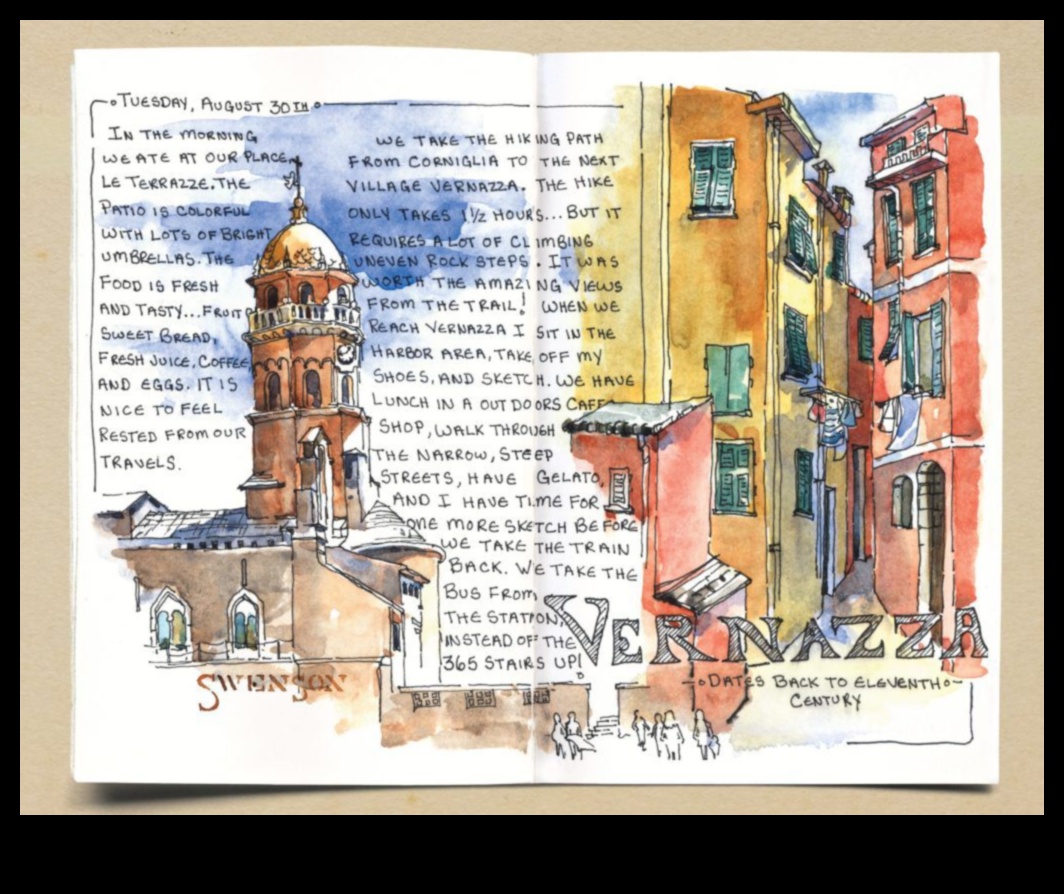 TUESDAY, AUGUST 30TH
IN THE MORNING
WE ATE AT OUR PLACE,
LE TERRAZZE. THE
PATIO IS COLORFUL
WITH LOTS OF BRIGHT
UMBRELLAS. THE
FOOD IS FRESH
AND TASTY...FRUIT
SWEET BREAD,
FRESH JUICE, COFFEE
AND EGGS. IT IS
NICE TO FEEL
RESTED FROM OUR
TRAVELS.
WE TAKE THE HIKING PATH
FROM CORNIGLIA TO THE NEXT
VILLAGE VERNAZZA. THE HIKE
ONLY TAKES 1 1/2 HOURS...BUT IT
REQUIRES A LOT OF CLIMBING
UNEVEN ROCK STEPS. IT WAS
WORTH THE AMAZING VIEWS
FROM THE TRAIL! WHEN WE
REACH VERNAZZA I SIT IN THE
HARBOR AREA, TAKE OFF MY
SHOES, AND SKETCH. WE HAVE
LUNCH IN A OUT DOORS CAFF
SHOP, WALK THROUGH
THE NARROW, STEEP
STREETS, HAVE GELATO,
AND I HAVE TIME FOR
ONE MORE SKETCH BEFORE
WE TAKE THE TRAIN
BACK. WE TAKE THE
BUS FROM
THE STATION,
INSTEAD OF THE
365 STAIRS UP!
SWENSON
VERNAZZA
DATES BACK TO ELEVENTH
CENTURY